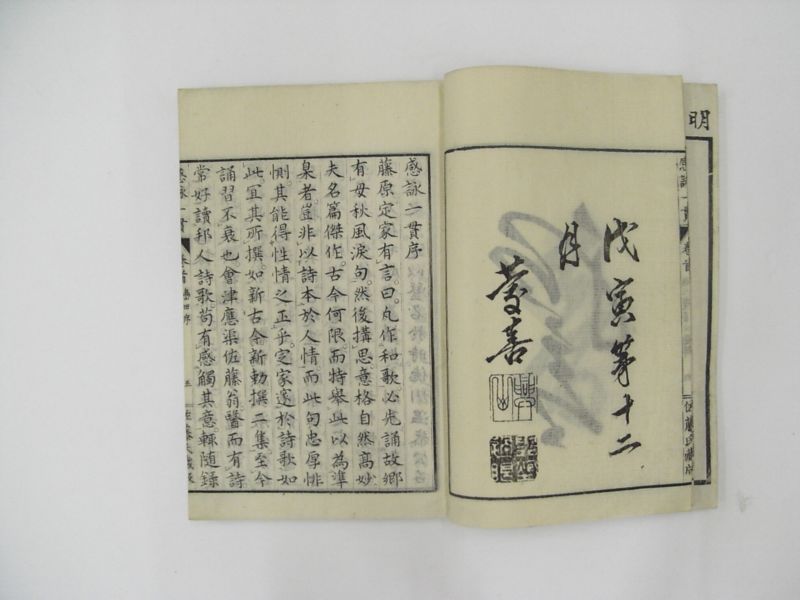 明
感詠一貫
卷首
佐藤氏藏版
戊寅第十二
月
感詠一貫序
藤原定家有言曰凡作和歌必先誦故鄉
有母秋風淚句然後搆思意格自然高妙
夫名篇傑作古今何限而特舉此以為準
臬者豈非以詩本於人情而此句忠厚悱
惻其能得性情之正乎定家邃於詩歌如
此宜其所撰如新古今新勅撰二集至今
誦習不衰也會津應渠佐藤翁醫而有詩
常好讀邦人詩歌苟有感觸其意輙隨錄
感詠一貫
卷首
序
五